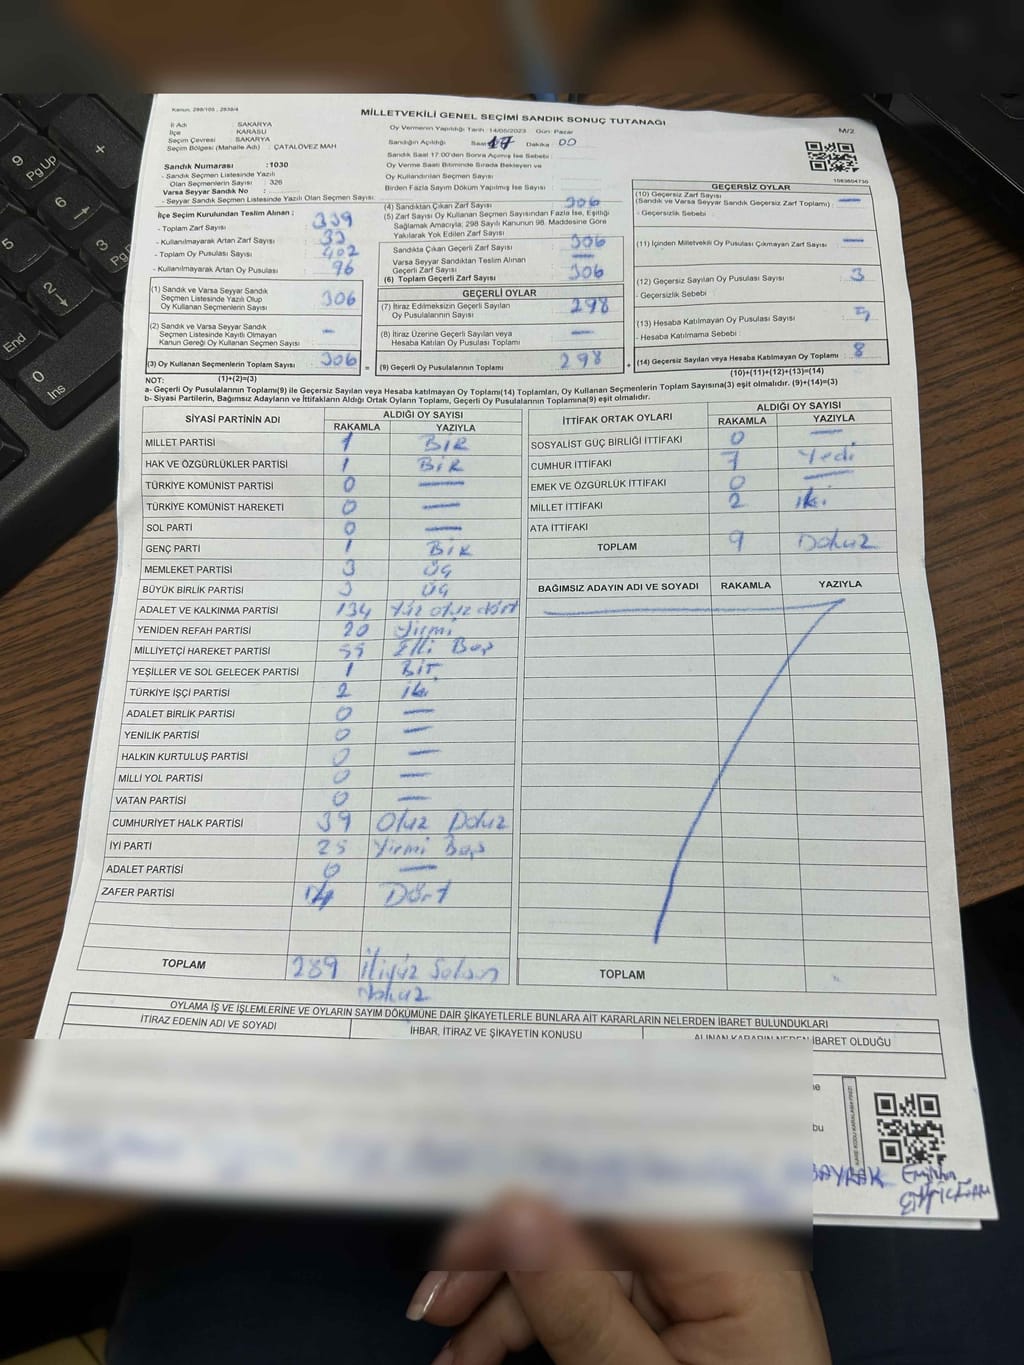 Kanun: 298/105 , 2839/4
MİLLETVEKİLİ GENEL SEÇİMİ SANDIK SONUÇ TUTANAĞI
M/2
İl Adı : SAKARYA
İlçe : KARASU
Seçim Çevresi : SAKARYA
Seçim Bölgesi (Mahalle Adı) : ÇATALÖVEZ MAH
Sandık Numarası : 1030
- Sandık Seçmen Listesinde Yazılı
Olan Seçmenlerin Sayısı : 326
Varsa Seyyar Sandık No :
- Seyyar Sandık Seçmen Listesinde Yazılı Olan Seçmen Sayısı:
Oy Vermenin Yapıldığı Tarih :14/05/2023 Gün: Pazar
Sandığın Açıldığı Saat 17 Dakika : 00
Sandık Saat 17:00'den Sonra Açılmış İse Sebebi :
Oy Verme Saati Bitiminde Sırada Bekleyen ve
Oy Kullandırılan Seçmen Sayısı :
Birden Fazla Sayım Döküm Yapılmış İse Sayısı :
1083604730
İlçe Seçim Kurulundan Teslim Alınan ;
- Toplam Zarf Sayısı : 339
- Kullanılmayarak Artan Zarf Sayısı : 33
- Toplam Oy Pusulası Sayısı : 402
- Kullanılmayarak Artan Oy Pusulası : 96
(1) Sandık ve Varsa Seyyar Sandık
Seçmen Listesinde Yazılı Olup
Oy Kullanan Seçmenlerin Sayısı : 306
(2) Sandık ve Varsa Seyyar Sandık
Seçmen Listesinde Kayıtlı Olmayan
Kanun Gereği Oy Kullanan Seçmenlerin Sayısı : –
(3) Oy Kullanan Seçmenlerin Toplam Sayısı : 306 =
(1)+(2)=(3)
(4) Sandıktan Çıkan Zarf Sayısı : 306
(5) Zarf Sayısı Oy Kullanan Seçmen Sayısından Fazla İse, Eşitliği
Sağlamak Amacıyla; 298 Sayılı Kanunun 98. Maddesine Göre
Yakılarak Yok Edilen Zarf Sayısı :
Sandıkta Çıkan Geçerli Zarf Sayısı : 306
Varsa Seyyar Sandıktan Teslim Alınan
Geçerli Zarf Sayısı :
(6) Toplam Geçerli Zarf Sayısı : 306
GEÇERLİ OYLAR
(7) İtiraz Edilmeksizin Geçerli Sayılan
Oy Pusulalarının Sayısı : 298
(8) İtiraz Üzerine Geçerli Sayılan veya
Hesaba Katılan Oy Pusulaları Toplamı : –
(9) Geçerli Oy Pusulalarının Toplamı : 298 +
GEÇERSİZ OYLAR
(10) Geçersiz Zarf Sayısı
(Sandık ve Varsa Seyyar Sandık Geçersiz Zarf Toplamı) : —
- Geçersizlik Sebebi :
(11) İçinden Milletvekili Oy Pusulası Çıkmayan Zarf Sayısı : —
(12) Geçersiz Sayılan Oy Pusulası Sayısı : 3
- Geçersizlik Sebebi :
(13) Hesaba Katılmayan Oy Pusulası Sayısı :
- Hesaba Katılmama Sebebi :
(14) Geçersiz Sayılan veya Hesaba Katılmayan Oy Toplamı : 8
(10)+(11)+(12)+(13)=(14)
NOT:
a- Geçerli Oy Pusulalarının Toplamı(9) ile Geçersiz Sayılan veya Hesaba katılmayan Oy Toplamı(14) Toplamları, Oy Kullanan Seçmenlerin Toplam Sayısına(3) eşit olmalıdır. (9)+(14)=(3)
b- Siyasi Partilerin, Bağımsız Adayların ve İttifakların Aldığı Ortak Oyların Toplamı, Geçerli Oy Pusulalarının Toplamına(9) eşit olmalıdır.
SİYASİ PARTİNİN ADI ALDIĞI OY SAYISI
RAKAMLA YAZIYLA
MİLLET PARTİSİ 1 BİR
HAK VE ÖZGÜRLÜKLER PARTİSİ 1 BİR
TÜRKİYE KOMÜNİST PARTİSİ 0 —
TÜRKİYE KOMÜNİST HAREKETİ 0 —
SOL PARTİ 0 —
GENÇ PARTİ 1 BİR
MEMLEKET PARTİSİ 3 ÜÇ
BÜYÜK BİRLİK PARTİSİ 3 ÜÇ
ADALET VE KALKINMA PARTİSİ 134 Yüz otuz dört
YENİDEN REFAH PARTİSİ 20 Yirmi
MİLLİYETÇİ HAREKET PARTİSİ 55 Elli Beş
YEŞİLLER VE SOL GELECEK PARTİSİ 1 BİR
TÜRKİYE İŞÇİ PARTİSİ 2 iki
ADALET BİRLİK PARTİSİ 0 —
YENİLİK PARTİSİ 0 —
HALKIN KURTULUŞ PARTİSİ 0 —
MİLLİ YOL PARTİSİ 0 —
VATAN PARTİSİ 0 —
CUMHURİYET HALK PARTİSİ 39 Otuz Dokuz
İYİ PARTİ 25 Yirmi Beş
ADALET PARTİSİ 0 —
ZAFER PARTİSİ 4 Dört
TOPLAM 289 İkiyüz Seksen
Dokuz
İTTİFAK ORTAK OYLARI ALDIĞI OY SAYISI
RAKAMLA YAZIYLA
SOSYALİST GÜÇ BİRLİĞİ İTTİFAKI 0 —
CUMHUR İTTİFAKI 7 Yedi
EMEK VE ÖZGÜRLÜK İTTİFAKI 0 —
MİLLET İTTİFAKI 2 iki
ATA İTTİFAKI
TOPLAM 9 Dokuz
BAĞIMSIZ ADAYIN ADI VE SOYADI RAKAMLA YAZIYLA
TOPLAM
OYLAMA İŞ VE İŞLEMLERİNE VE OYLARIN SAYIM DÖKÜMÜNE DAİR ŞİKAYETLERLE BUNLARA AİT KARARLARIN NELERDEN İBARET BULUNDUKLARI
İTİRAZ EDENİN ADI VE SOYADI İHBAR, İTİRAZ VE ŞİKAYETİN KONUSU ALINAN KARARIN NEDEN İBARET OLDUĞU
BAYRAK
9 Pg Up
+
6
5
3 Pg
2
End
0 Ins